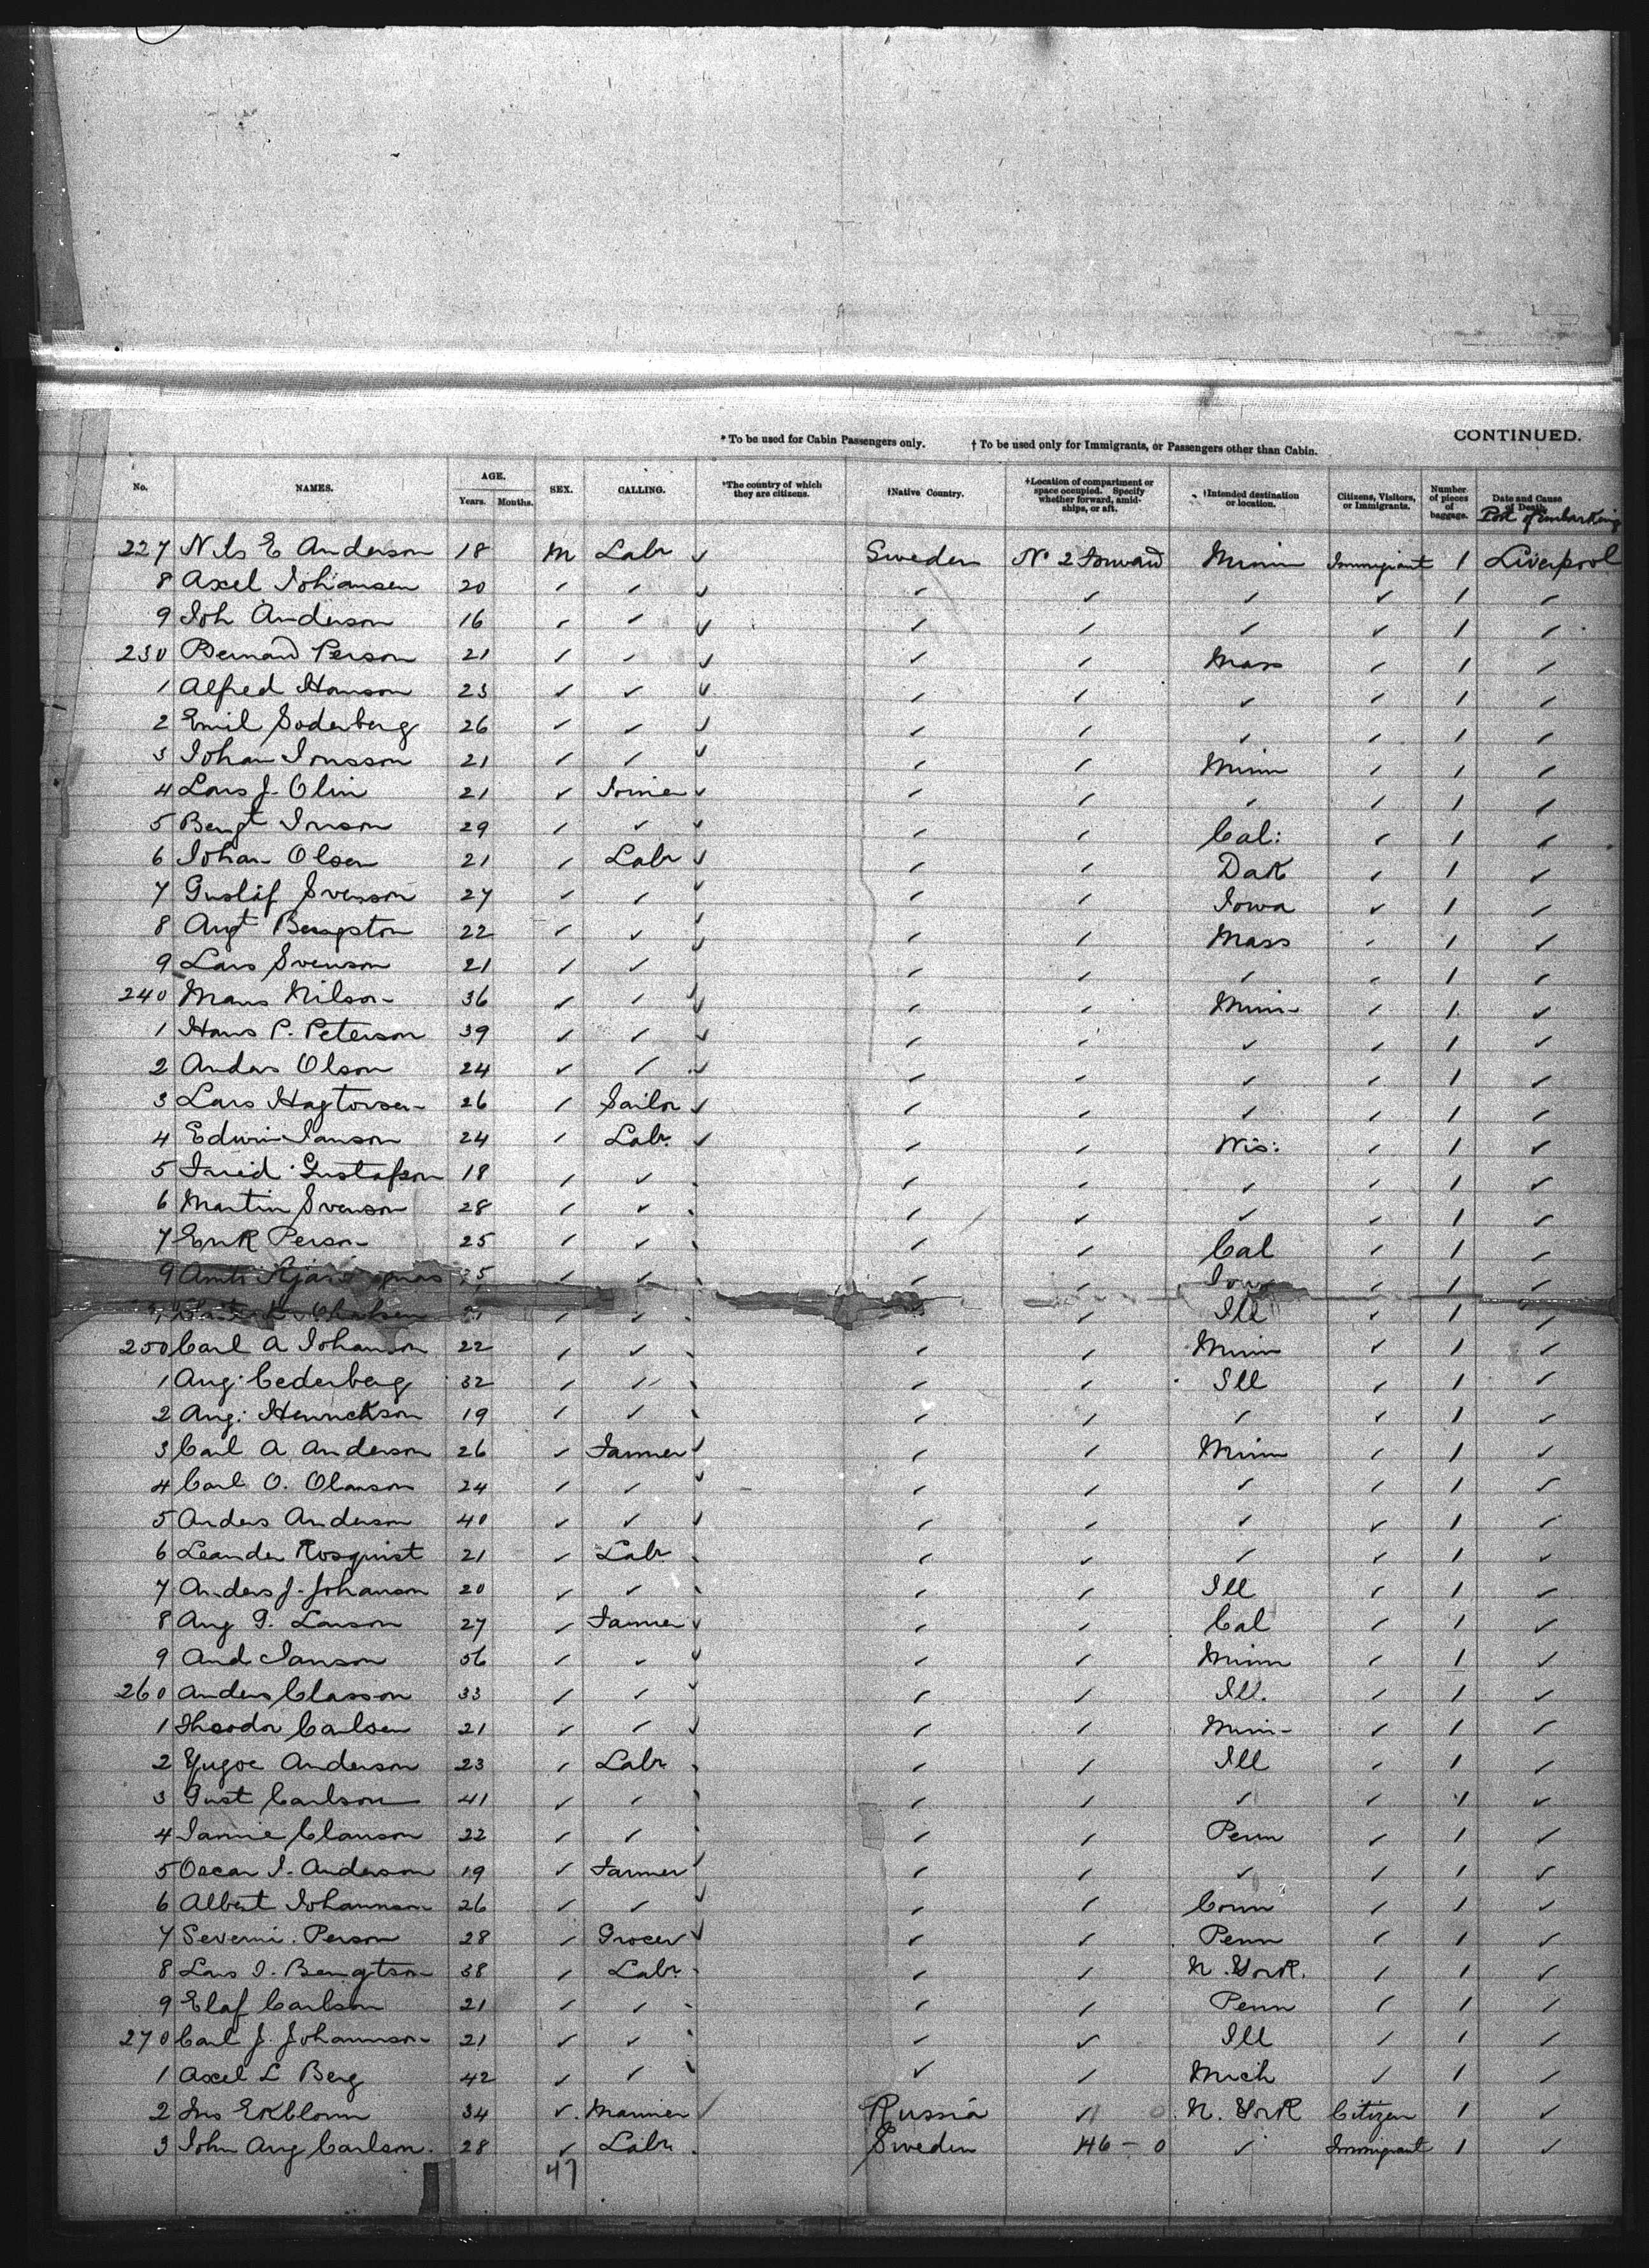 * To be used for Cabin Passengers only. † To be used only for Immigrants, or Passengers other than Cabin. CONTINUED.
No. NAMES. AGE. Years. Months. SEX. CALLING. *The country of which they are citizens. †Native Country. †Location of compartment or space occupied. Specify whether forward, amidships, or aft. †Intended destination or location. Citizens, Visitors, or Immigrants. Number of pieces of baggage. Date and Cause of Death. Port of embarking
227 Nils E Anderson 18 M Labr ✓ Sweden No 2 Forward Minn Immigrant 1 Liverpool
8 Axel Johansen 20 ✓ ✓ ✓ ✓ ✓ ✓ ✓ 1 ✓
9 Joh Anderson 16 ✓ ✓ ✓ ✓ ✓ ✓ ✓ 1 ✓
230 Bernard Person 21 ✓ ✓ ✓ ✓ ✓ Mass ✓ 1 ✓
1 Alfred Hanson 23 ✓ ✓ ✓ ✓ ✓ ✓ ✓ 1 ✓
2 Emil Soderberg 26 ✓ ✓ ✓ ✓ ✓ ✓ ✓ 1 ✓
3 Johan Jonsson 21 ✓ ✓ ✓ ✓ ✓ Minn ✓ 1 ✓
4 Lars J. Olin 21 ✓ Joiner ✓ ✓ ✓ ✓ ✓ 1 ✓
5 Bengt 29 ✓ ✓ ✓ ✓ ✓ Cal: ✓ 1 ✓
6 Johan Olsen 21 ✓ Labr ✓ ✓ ✓ Dak ✓ 1 ✓
7 Gustaf Svenson 27 ✓ ✓ ✓ ✓ ✓ Iowa ✓ 1 ✓
8 Augt Bengston 22 ✓ ✓ ✓ ✓ ✓ Mass ✓ 1 ✓
9 Lars Svenson 21 ✓ ✓ ✓ ✓ ✓ ✓ 1 ✓
240 Mans Nilson 36 ✓ ✓ ✓ ✓ ✓ Minn ✓ 1 ✓
1 Hans P. Peterson 39 ✓ ✓ ✓ ✓ ✓ ✓ ✓ 1 ✓
2 Anders Olson 24 ✓ ✓ ✓ ✓ ✓ ✓ ✓ 1 ✓
3 Lars 26 ✓ Sailor ✓ ✓ ✓ ✓ ✓ 1 ✓
4 Edwin Janson 24 ✓ Labr. ✓ ✓ ✓ Wis: ✓ 1 ✓
5 Gustafson 18 ✓ ✓ ✓ ✓ ✓ ✓ 1 ✓
6 Martin Svenson 28 ✓ ✓ ✓ ✓ ✓ ✓ 1 ✓
7 Erik Person 25 ✓ ✓ ✓ ✓ Cal ✓ 1 ✓
9 ✓ ✓ ✓ ✓ Iowa ✓ 1 ✓
✓ ✓ ✓ Ill ✓ 1 ✓
250 Carl A Johanson 22 ✓ ✓ ✓ ✓ Minn ✓ 1 ✓
1 Aug: Cederberg 32 ✓ ✓ ✓ ✓ Ill ✓ 1 ✓
2 Aug: Henrickson 19 ✓ ✓ ✓ ✓ ✓ ✓ 1 ✓
3 Carl A Anderson 26 ✓ Farmer ✓ ✓ ✓ Minn ✓ 1 ✓
4 Carl O. Olanson 24 ✓ ✓ ✓ ✓ ✓ ✓ ✓ 1 ✓
5 Anders Anderson 40 ✓ ✓ ✓ ✓ ✓ ✓ ✓ 1 ✓
6 Leander Rosquist 21 ✓ Labr ✓ ✓ ✓ ✓ 1 ✓
7 Anders J. Johanson 20 ✓ ✓ ✓ ✓ Ill ✓ 1 ✓
8 Aug G. Larson 27 ✓ Farmer ✓ ✓ ✓ Cal ✓ 1 ✓
9 And Janson 56 ✓ ✓ ✓ ✓ ✓ Minn ✓ 1 ✓
260 Anders Classon 33 ✓ ✓ ✓ ✓ ✓ Ill. ✓ 1 ✓
1 Theodor Carlsen 21 ✓ ✓ ✓ ✓ ✓ Minn ✓ 1 ✓
2 Anderson 23 ✓ Labr ✓ ✓ Ill ✓ 1 ✓
3 Gust Carlson 41 ✓ ✓ ✓ ✓ ✓ ✓ 1 ✓
4 Jannie Clauson 22 ✓ ✓ ✓ ✓ Penn ✓ 1 ✓
5 Oscar J. Anderson 19 ✓ Farmer ✓ ✓ ✓ ✓ ✓ 1 ✓
6 Albert Johannson 26 ✓ ✓ ✓ ✓ ✓ Conn ✓ 1 ✓
7 Severin. Person 28 ✓ Grocer ✓ ✓ ✓ Penn ✓ 1 ✓
8 Lars J. Bengtson 38 ✓ Labr. ✓ ✓ N. York. ✓ 1 ✓
9 Elof Carlson 21 ✓ ✓ ✓ ✓ Penn ✓ 1 ✓
270 Carl J. Johannson 21 ✓ ✓ ✓ ✓ Ill ✓ 1 ✓
1 Axel L Berg 42 ✓ ✓ ✓ ✓ Mich ✓ 1 ✓
2 Jno Ekblom 34 ✓ Mariner ✓ Russia ✓ N. York Citizen 1 ✓
3 John Aug Carlson. 28 ✓ Labr. Sweden 46 - 0 ✓ Immigrant 1 ✓
47